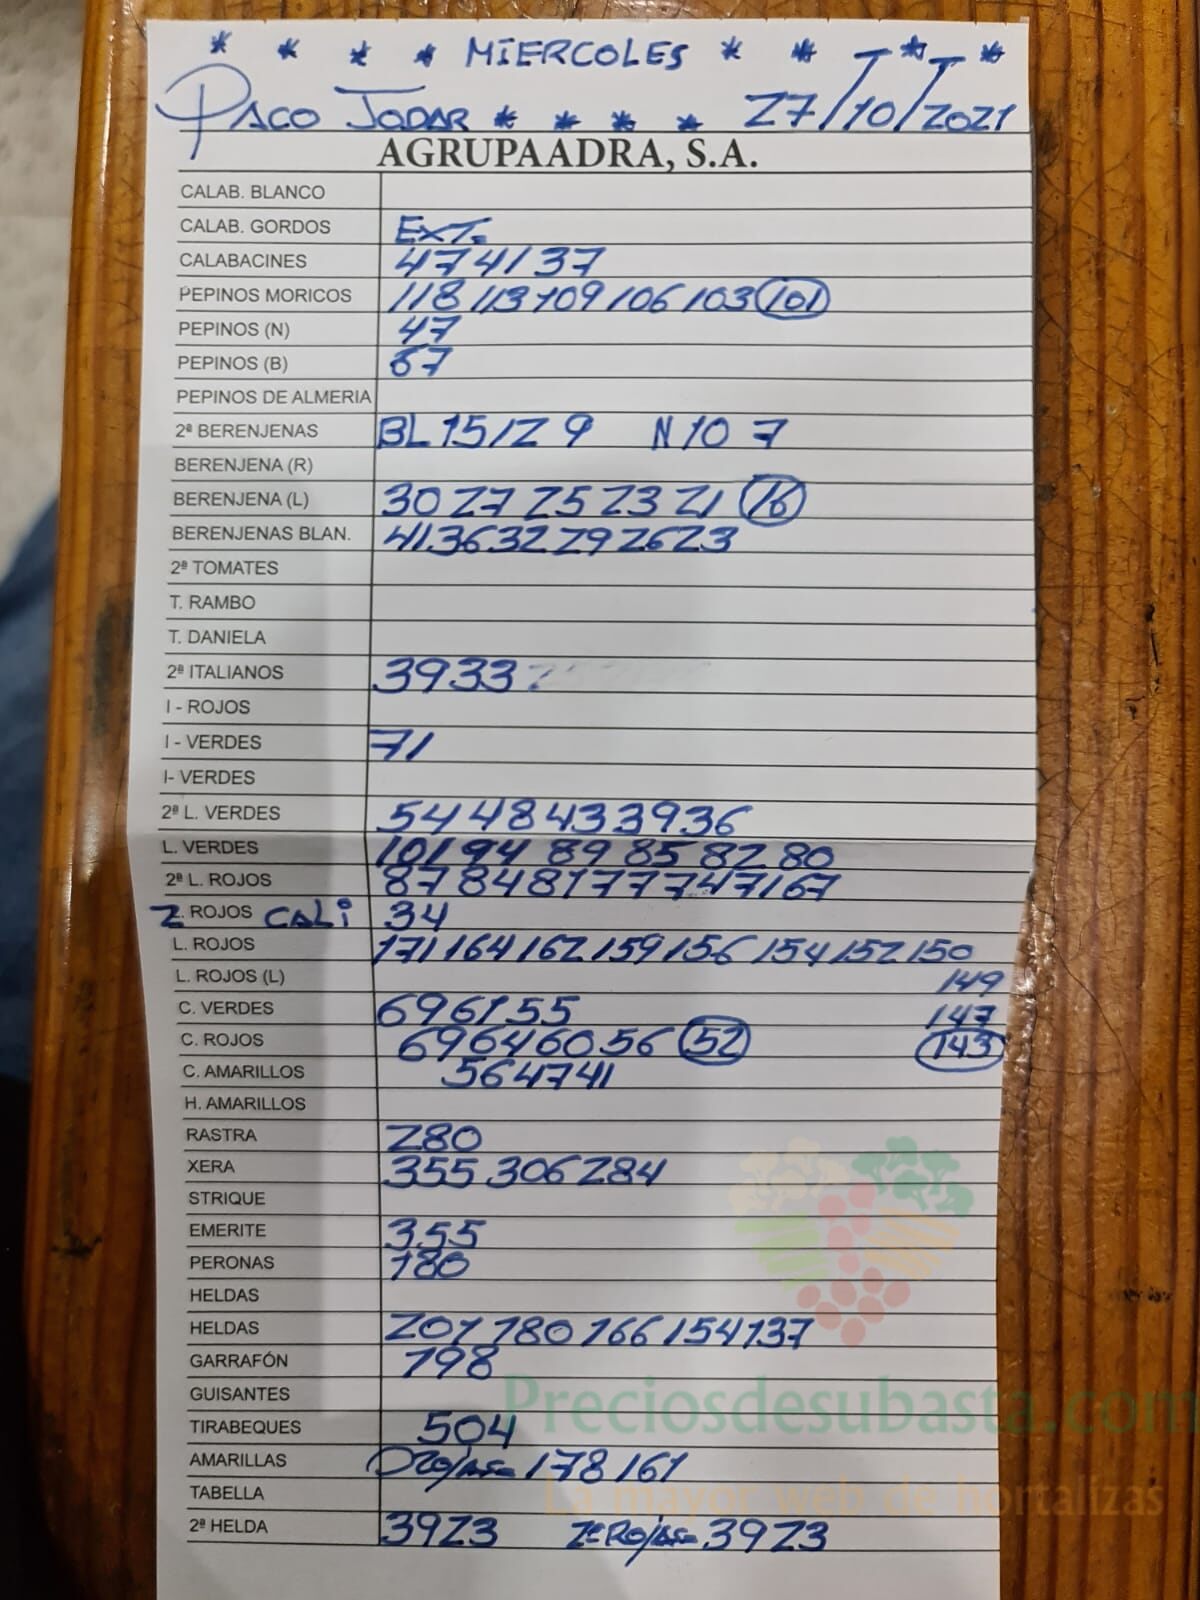 * * * * MIERCOLES * * * *
PACO JODAR * * * * 27/10/2021
AGRUPAADRA, S.A.
CALAB. BLANCO
CALAB. GORDOS EXT.
CALABACINES 47 41 37
PEPINOS MORICOS 118 113 109 106 103 101
PEPINOS (N) 47
PEPINOS (B) 67
PEPINOS DE ALMERIA
2ª BERENJENAS BL 15 12 9 N 10 7
BERENJENA (R)
BERENJENA (L) 30 27 25 23 21 16
BERENJENAS BLAN. 41 36 32 29 26 23
2ª TOMATES
T. RAMBO
T. DANIELA
2ª ITALIANOS 39 33
I - ROJOS
I - VERDES 71
I- VERDES
2ª L. VERDES 54 48 43 39 36
L. VERDES 101 94 89 85 82 80
2ª L. ROJOS 87 84 81 77 74 71 67
2. ROJOS CALI 34
L. ROJOS 171 164 162 159 156 154 152 150
L. ROJOS (L) 149
C. VERDES 69 61 55 147
C. ROJOS 69 64 60 56 52 143
C. AMARILLOS 56 47 41
H. AMARILLOS
RASTRA 280
XERA 355 306 284
STRIQUE
EMERITE 355
PERONAS 180
HELDAS
HELDAS 201 180 166 154 137
GARRAFÓN 198
GUISANTES
Preciosdesubasta.com
TIRABEQUES 504
AMARILLAS ROJAS= 178 161
La mayor web de hortalizas
TABELLA
2ª HELDA 39 23 2ª ROJAS= 39 23